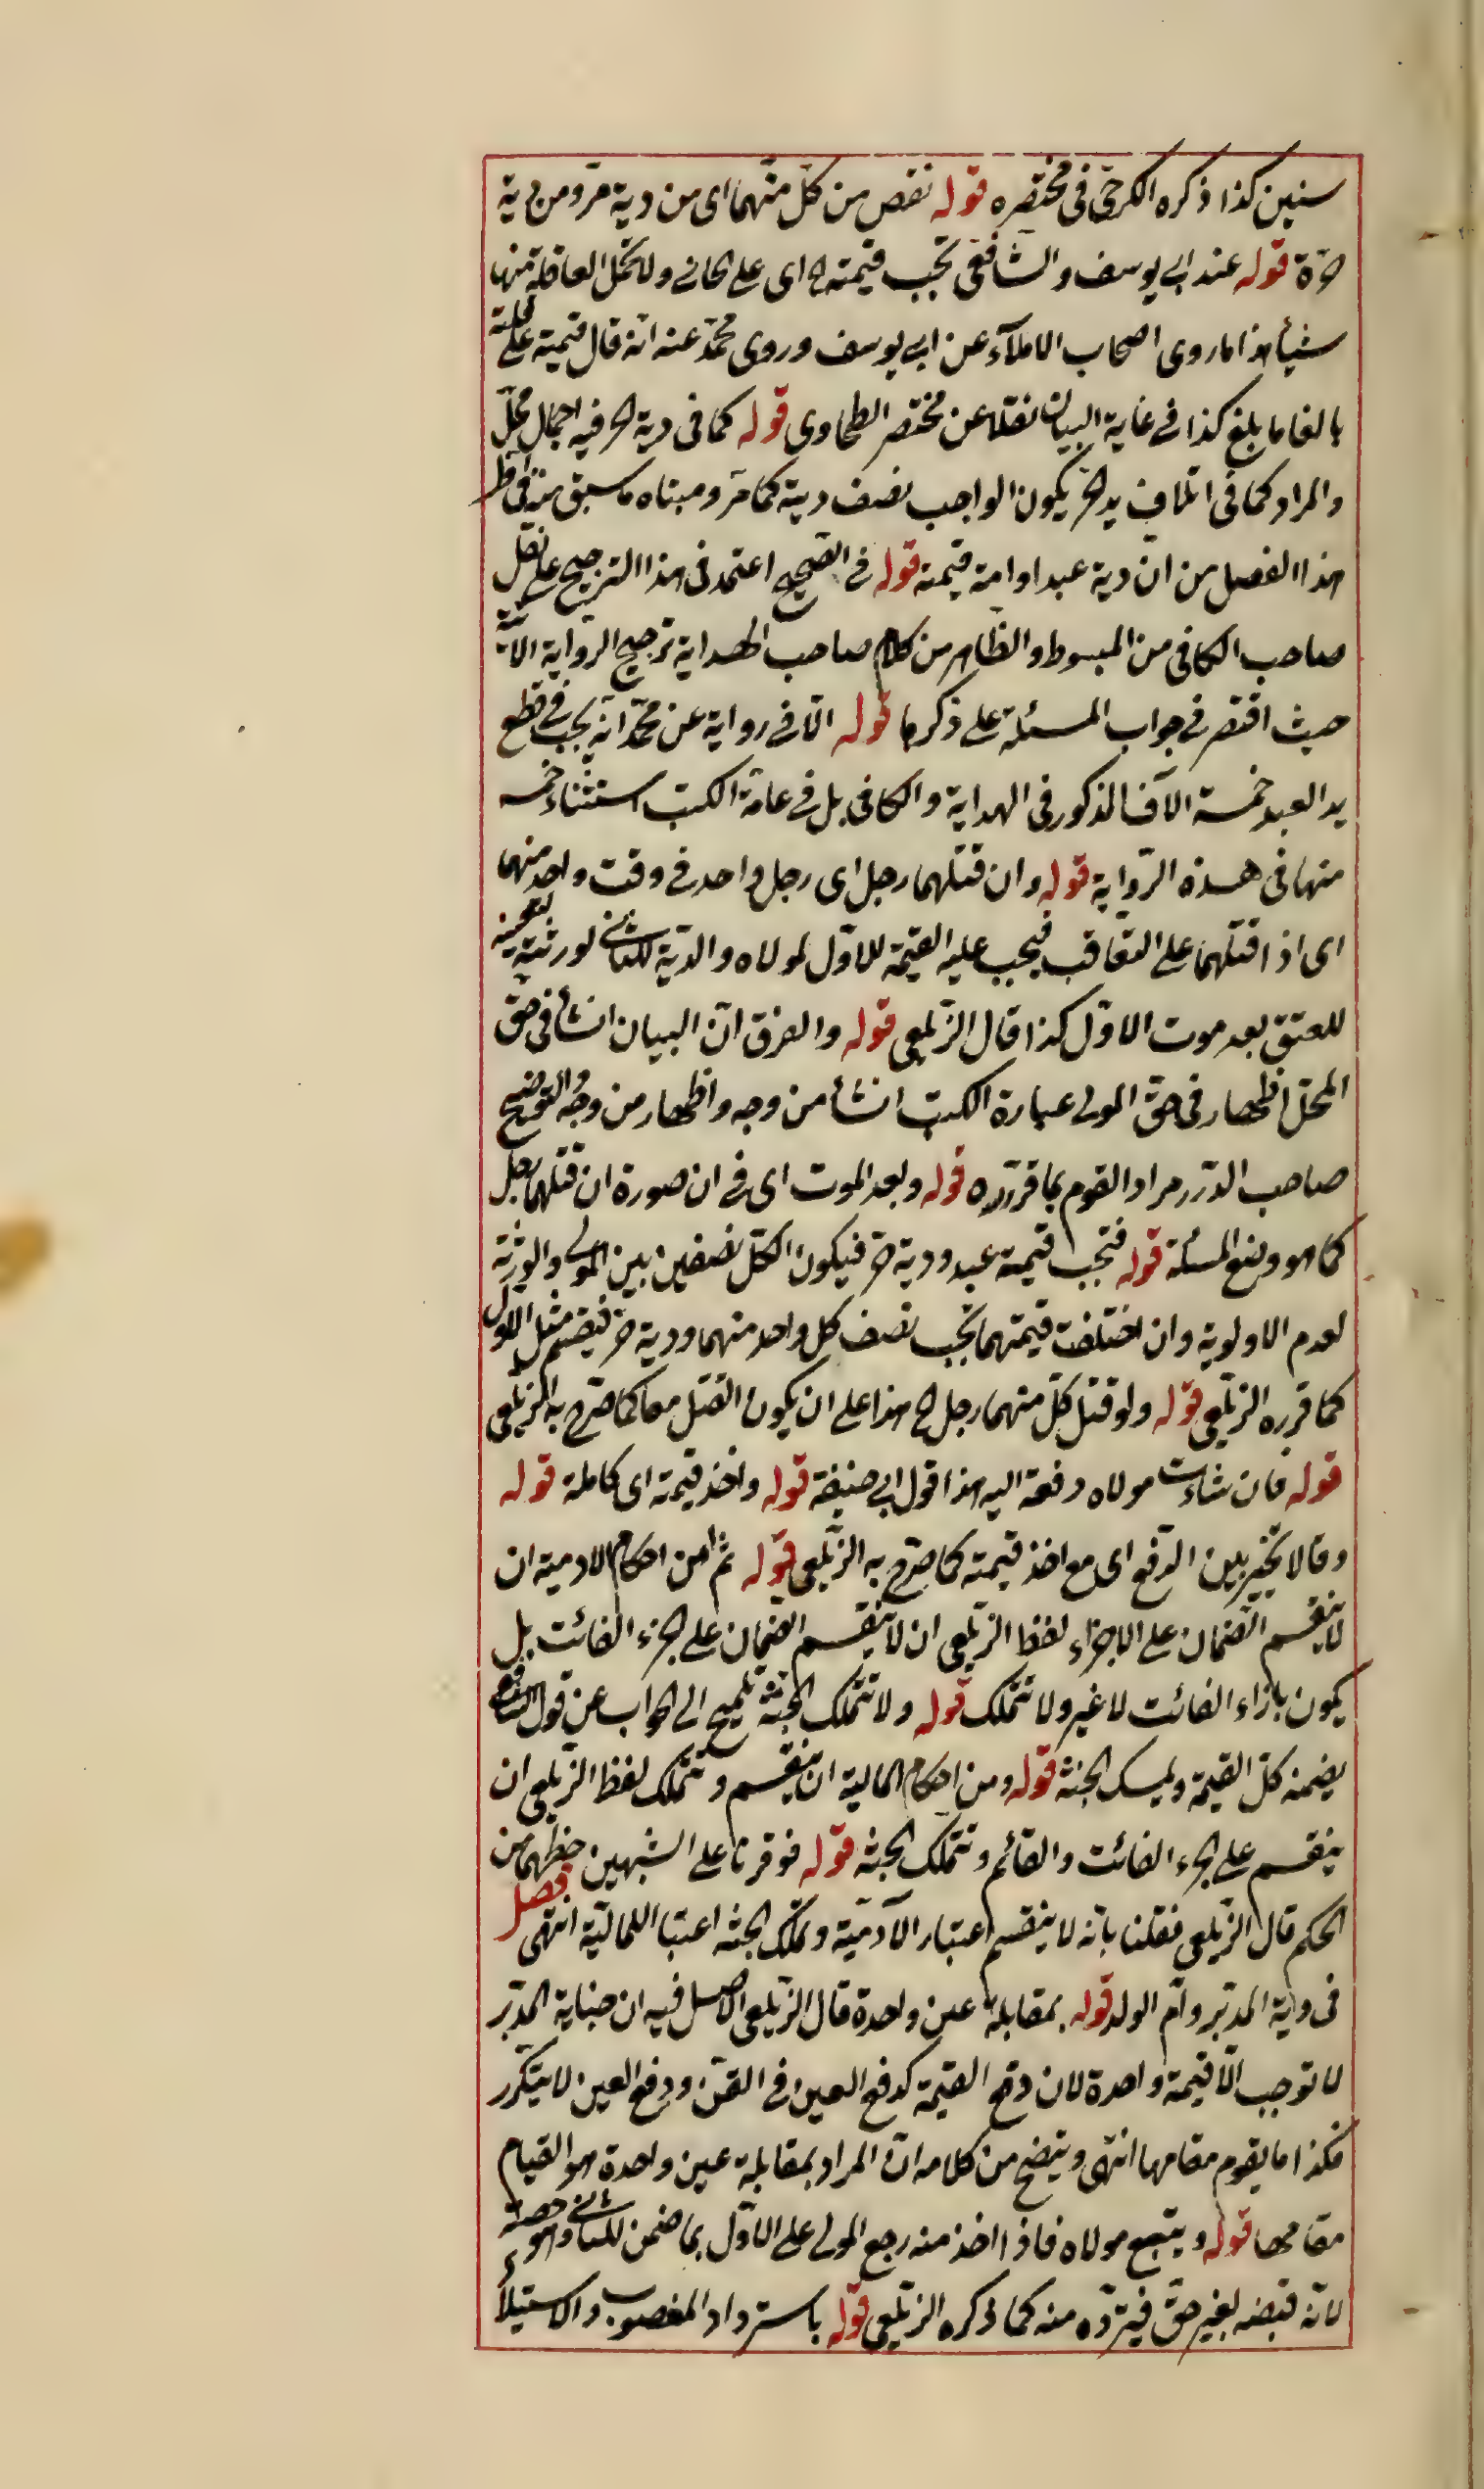 سنين كذا ذكره الكرخي في مختصره قوله نقص من كل منهما اى من دية حر ومن دية
حرة قوله عند ابى يوسف والشافعى تجب قيمته الخ اى على الجانى ولا تحمل العاقلة منها
شيأ هذا ما روى اصحاب الاملاء عن ابى يوسف وروى محمد عنه انه قال قيمته على عاقلته
بالغا ما بلغ كذا فى غاية البيان نقلا عن مختصر الطحاوى قوله كما فى دية الحر فيه اجمال مخل
والمراد كما فى اتلاف يد الحر يكون الواجب نصف دية كما مر ومبناه ما سبق منه فى
هذا الفصل من ان دية عبد او امة قيمته قوله فى الصحيح اعتمد فى هذا الترجيح على نقل
صاحب الكافى من المبسوط والظاهر من كلام صاحب الهداية ترجيح الرواية الآتية
حيث اقتصر فى جواب المسئلة على ذكرها قوله الا فى رواية عن محمد انه يجب فى قطع
يد العبد خمسة الآف المذكور فى الهداية والكافى بل فى عامة الكتب استثناء خمسه
منها فى هذه الرواية قوله وان قتلهما رجل اى رجل واحد فى وقت واحد منهما
اى اذ اقتلهما على التعاقب فيجب عليه القيمة للاول لمولاه والدية للثانى لورثته لتعينه
للعتق بعد موت الاول كذا قال الزيلعى قوله والفرق ان البيان انشأ فى حق
المحل اظهار فى حق المولى عبارة الكتب انشأ من وجه واظهار من وجه اوضح
صاحب الدرر مراد القوم بما قرره قوله وبعد الموت اى فى ان صورة ان قتلهما رجل
كما هو وضع المسئلة قوله فتجب قيمة عبد ودية حر فيكون الكل نصفين بين المولى والورثة
لعدم الاولوية وان اختلفت قيمتهما تجب نصف كل واحد منهما ودية حر فيقسم مثل الاول
كما قرره الزيلعى قوله ولو قتل كل منهما رجل الخ هذا على ان يكون القتل معا كما صرح به الزيلعى
قوله فان شاء مولاه دفعه اليه هذا قول ابى حنيفة قوله واخذ قيمته اى كاملة قوله
وقالا يخير بين الدفع اى مع اخذ قيمته كما صرح به الزيلعى قوله ثم من احكام الادمية ان
لا ينقسم الضمان على الاجزاء لفظ الزيلعى ان لا ينقسم الضمان على الجزء الفائت بل
يكون بازاء الفائت لا غير ولا تتملك قوله ولا تتملك الجثة تلميح الى الجواب عن قول الشافعى
يضمنه كل القيمة ويمسك الجثة قوله ومن احكام المالية ان ينقسم وتتملك لفظ الزيلعى ان
ينقسم على الجزء الفائت والقائم وتتملك الجثة قوله فوفرنا على الشبهين حظهما من
الحكم قال الزيلعى فقلنا بانه لا ينقسم اعتبار الآدمية وتملك الجثة اعتبا اللمالية انتهى فصل
فى دية المدبر وام الولد قوله بمقابلة عين واحدة قال الزيلعى الاصل فيه ان جناية المدبر
لا توجب الا قيمة واحدة لان دفع القيمة كدفع العين فى القن ودفع العين لا يتكرر
فكذا ما يقوم مقامها انتهى ويتضح من كلامه ان المراد بمقابلة عين واحدة هو القيام
مقامها قوله ويتبع مولاه فاذا اخذ منه رجع المولى على الاول بما ضمن للثانى وهو حصته
لانه قبضه بغير حق فيرده منه كما ذكره الزيلعى قوله باسترداد المغصوب والاستيلاء